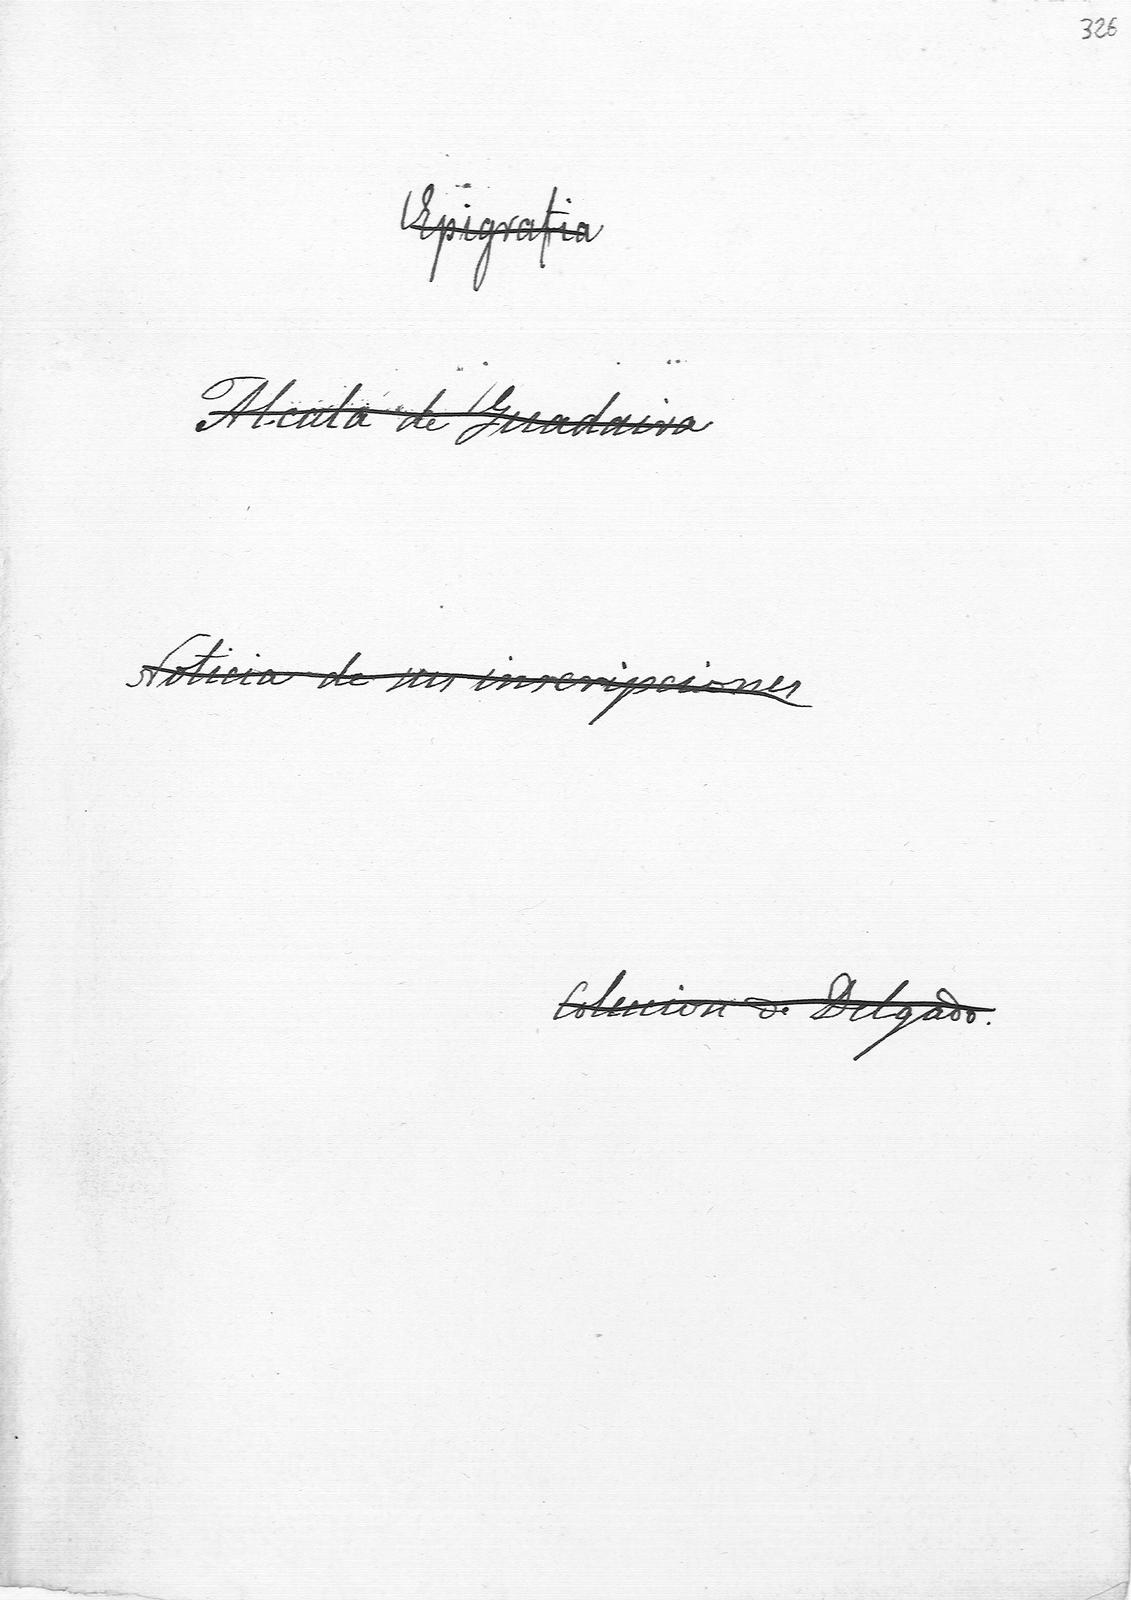 326
Epigrafia
Alcalá de Guadaira
Noticia de sus inscripciones
Coleccion de Delgado.